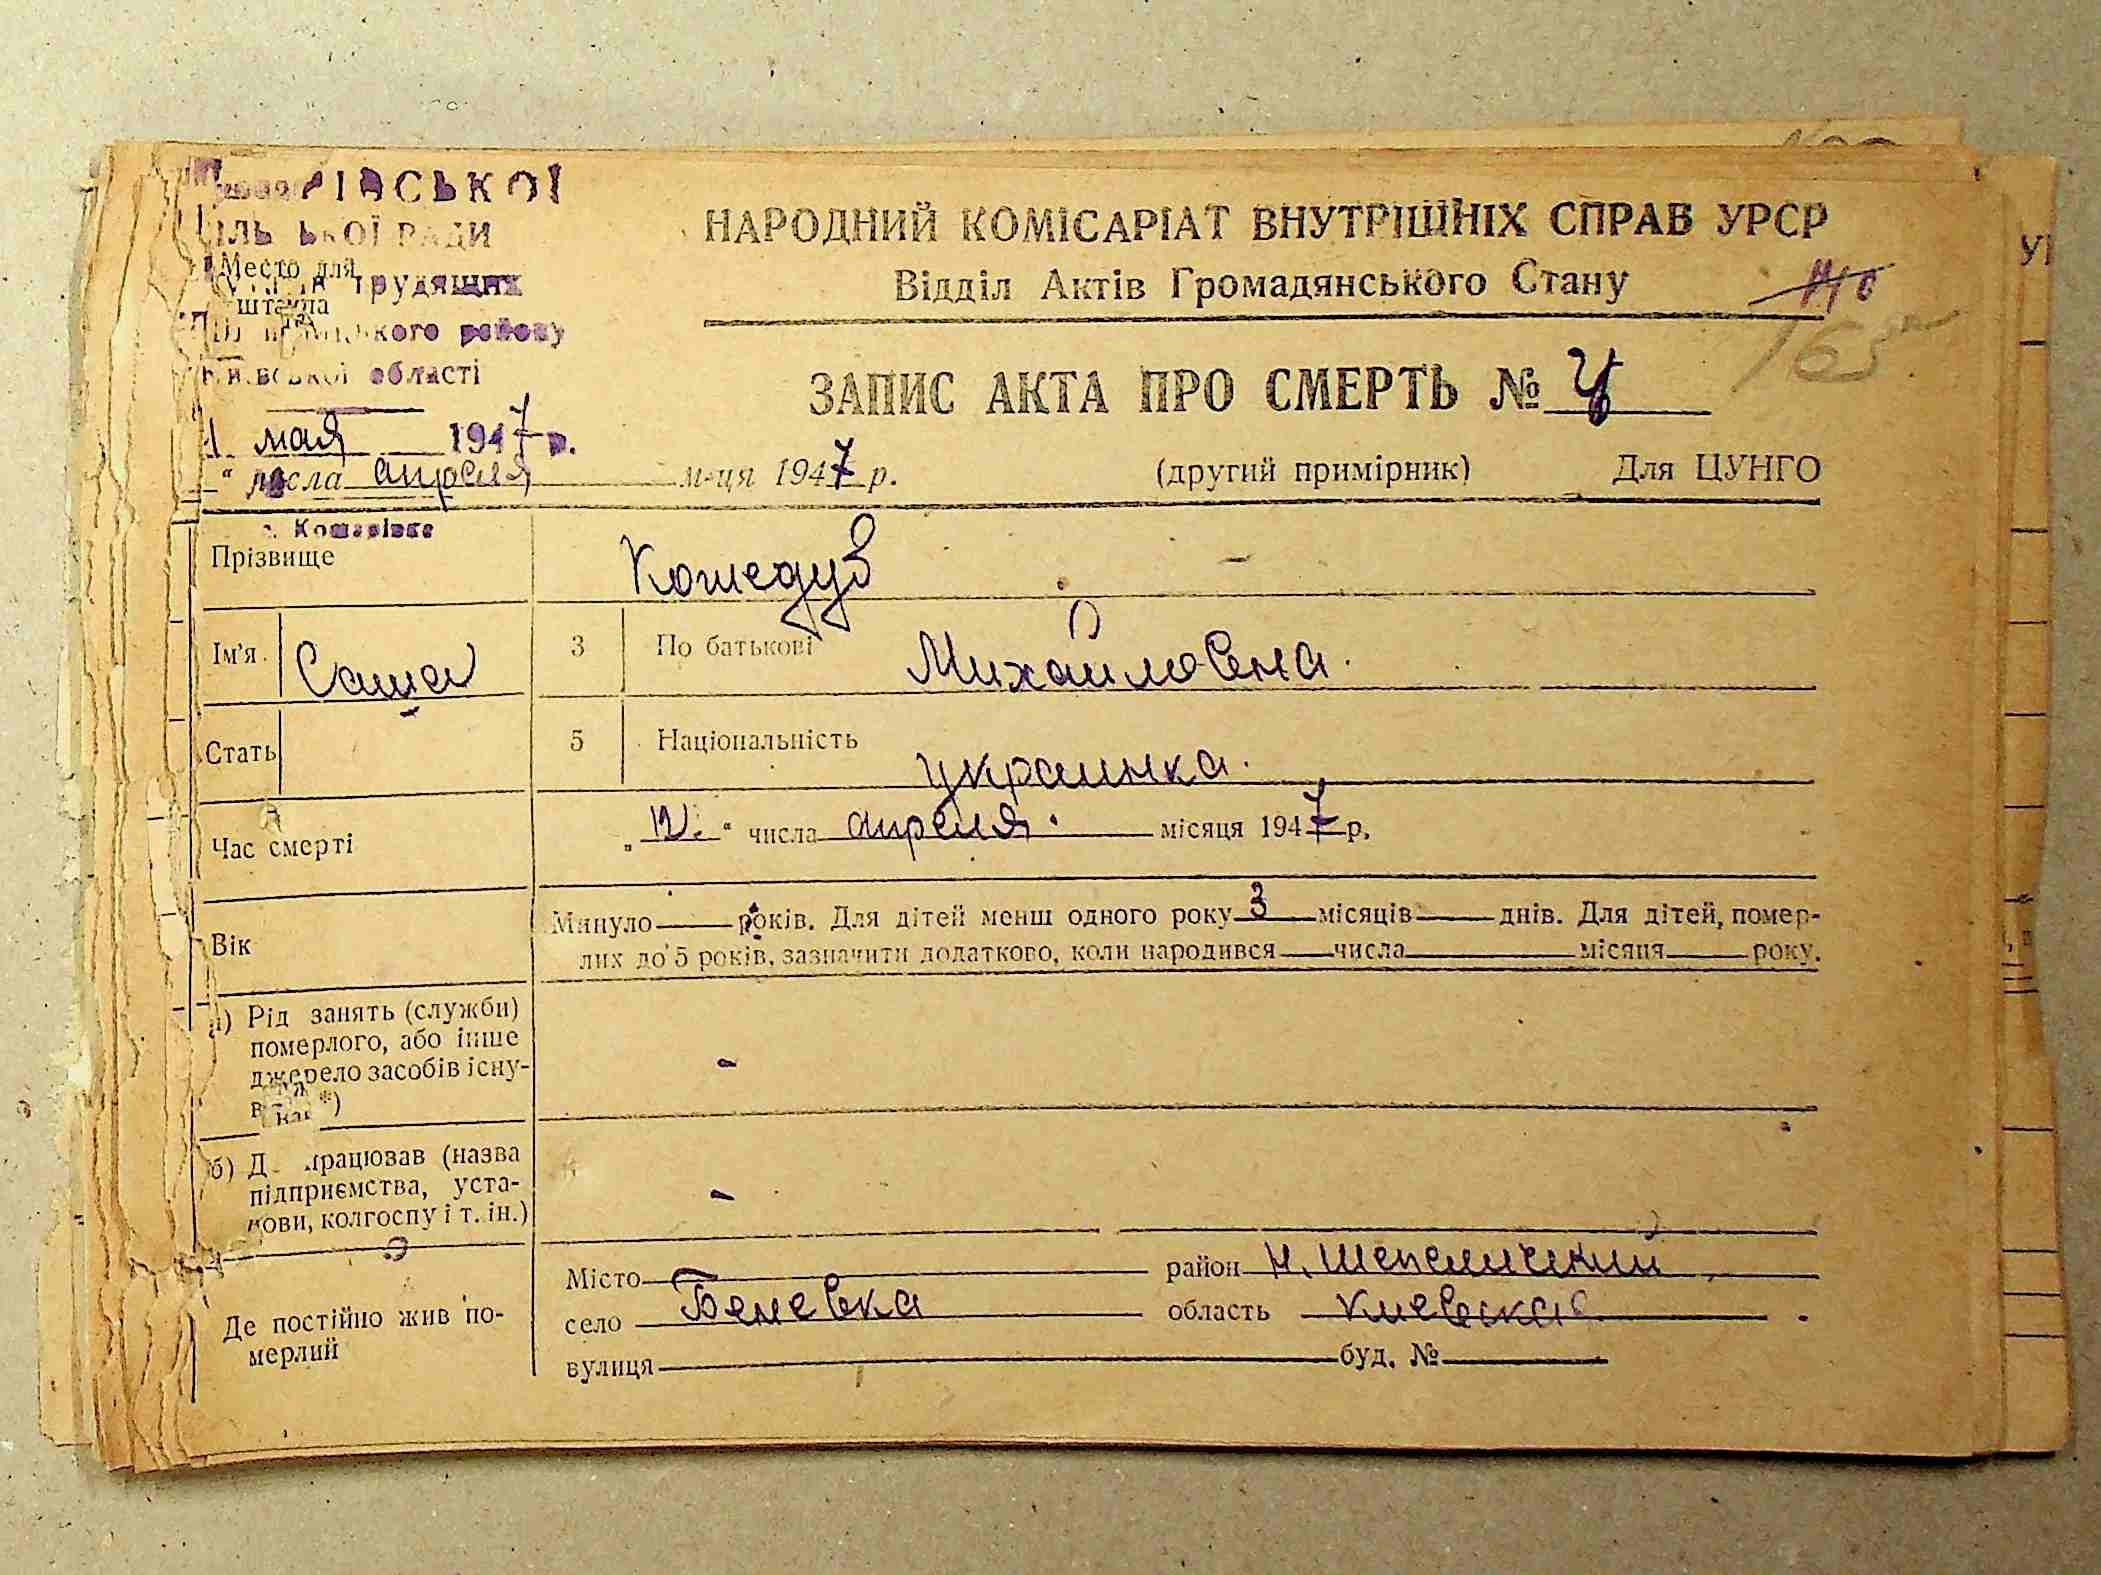 РІВСЬКОЇ
РАДИ
Место для
трудящих
штампа
району
області
НАРОДНИЙ КОМІСАРІАТ ВНУТРІШНІХ СПРАВ УРСР
Відділ Актів Громадянського Стану
165
ЗАПИС АКТА ПРО СМЕРТЬ №
1 мая 1947 р.
числа апреля м-ця 1947 р. (другий примірник) Для ЦУНГО
с. Кошарівка
Прізвище Кошедуб
Ім'я Саша 3 По батькові Михайловна.
Стать 5 Національність украинка.
Час смерті „12." числа апреля. місяця 1947 р.
Вік Минуло років. Для дітей менш одного року 3 місяців днів. Для дітей, помер-
лих до 5 років, зазначити додатково, коли народився числа місяця року.
а) Рід занять (служби)
померлого, або інше
джерело засобів існу-
*) -
б) працював (назва
підприємства, уста-
нови, колгоспу і т. ін.) -
Де постійно жив по-
мерлий
Місто район Н. Шепеличский
село Беневка область Киевская.
вулиця буд. №